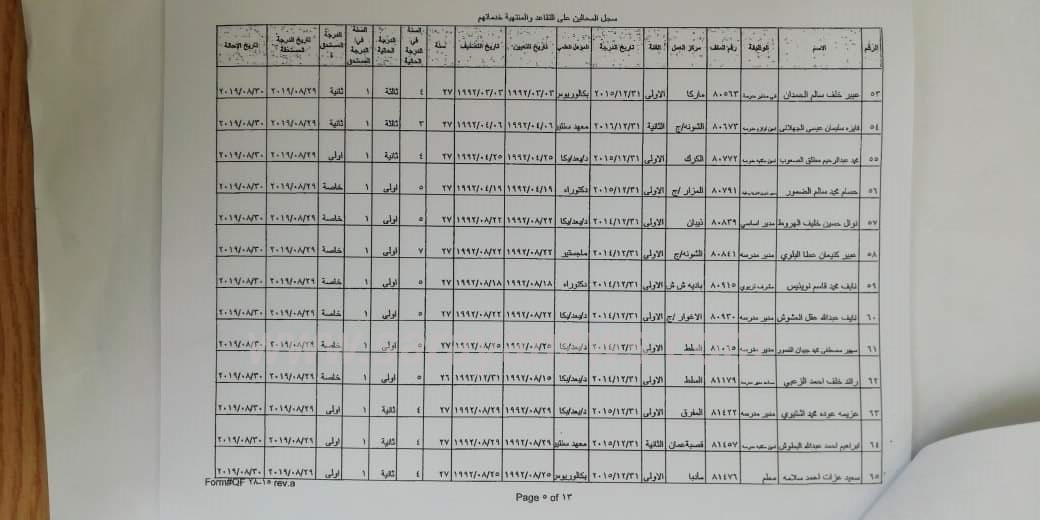 سجل المحالين على التقاعد والمنتهية خدماتهم
الرقم الاسم الوظيفة رقم الملف مركز العمل الفئة تاريخ الدرجة المؤهل العلمي تاريخ التعيين تاريخ التصنيف سنة السنة في الدرجة الحالية الدرجة الحالية السنة في الدرجة المستحق الدرجة المستحق تاريخ الدرجة المستحقة تاريخ الإحالة
٥٣ عبير خلف سالم الحمدان ٨٠٥٦٣ ماركا الاولى ٢٠١٥/١٢/٣١ بكالوريوس ١٩٩٢/٠٣/٠٣ ١٩٩٢/٠٣/٠٣ ٢٧ ٤ ثالثة ١ ثانية ٢٠١٩/٠٨/٢٩ ٢٠١٩/٠٨/٣٠
٥٤ فايزه سليمان عيسى الجهالاني ٨٠٦٧٣ الشونه/ج الثانية ٢٠١٦/١٢/٣١ معهد سنتين ١٩٩٢/٠٤/٠٦ ١٩٩٢/٠٤/٠٦ ٢٧ ٣ ثالثة ١ ثانية ٢٠١٩/٠٨/٢٩ ٢٠١٩/٠٨/٣٠
٥٥ محمد عبدالرحيم مطلق الصعوب ٨٠٧٧٢ الكرك الاولى ٢٠١٥/١٢/٣١ د/بعد/بكا ١٩٩٢/٠٤/٢٥ ١٩٩٢/٠٤/٢٥ ٢٧ ٤ ثانية ١ اولى ٢٠١٩/٠٨/٢٩ ٢٠١٩/٠٨/٣٠
٥٦ حسام محمد سالم الضمور ٨٠٧٩١ المزار /ج الاولى ٢٠١٥/١٢/٣١ دكتوراه ١٩٩٢/٠٤/١٩ ١٩٩٢/٠٤/١٩ ٢٧ ٥ اولى ١ خاصة ٢٠١٩/٠٨/٢٩ ٢٠١٩/٠٨/٣٠
٥٧ نوال حسين خليف الهروط مدير اساسي ٨٠٨٣٩ ذيبان الاولى ٢٠١٤/١٢/٣١ د/بعد/بكا ١٩٩٢/٠٨/٢٢ ١٩٩٢/٠٨/٢٢ ٢٧ ٥ اولى ١ خاصة ٢٠١٩/٠٨/٢٩ ٢٠١٩/٠٨/٣٠
٥٨ عبير كنيعان عطا البلوي مدير مدرسه ٨٠٨٤١ الشونه/ج الاولى ٢٠١٤/١٢/٣١ ماجستير ١٩٩٢/٠٨/٢٢ ١٩٩٢/٠٨/٢٢ ٢٧ ٧ اولى ١ خاصة ٢٠١٩/٠٨/٢٩ ٢٠١٩/٠٨/٣٠
٥٩ نايف محمد قاسم نويتيس مشرف تربوي ٨٠٩١٥ باديه ش ش الاولى ٢٠١٤/١٢/٣١ دكتوراه ١٩٩٢/٠٨/١٨ ١٩٩٢/٠٨/١٨ ٢٧ ٥ اولى ١ خاصة ٢٠١٩/٠٨/٢٩ ٢٠١٩/٠٨/٣٠
٦٠ نايف عبدالله عقل العشوش مدير مدرسه ٨٠٩٣٠ الاغوار /ج الاولى ٢٠١٤/١٢/٣١ د/بعد/بكا ١٩٩٢/٠٨/٢٢ ١٩٩٢/٠٨/٢٢ ٢٧ ٥ اولى ١ خاصة ٢٠١٩/٠٨/٢٩ ٢٠١٩/٠٨/٣٠
٦١ سهير مصطفى مدير مدرسه ٨١٠٦٥ السلط الاولى ٢٠١٤/١٢/٣١ د/بعد/بكا ١٩٩٢/٠٨/٢٥ ١٩٩٢/٠٨/٢٥ ٢٧ ٥ اولى ١ خاصة ٢٠١٩/٠٨/٢٩ ٢٠١٩/٠٨/٣٠
٦٢ رائد خلف احمد الزعبي ٨١١٧٩ السلط الاولى ٢٠١٤/١٢/٣١ د/بعد/بكا ١٩٩٢/٠٨/١٥ ١٩٩٢/١٢/٣١ ٢٦ ٥ اولى ١ خاصة ٢٠١٩/٠٨/٢٩ ٢٠١٩/٠٨/٣٠
٦٣ عزيمه عوده محمد الشتيوي مدير مدرسه ٨١٤٢٢ المفرق الاولى ٢٠١٥/١٢/٣١ د/بعد/بكا ١٩٩٢/٠٨/٢٩ ١٩٩٢/٠٨/٢٩ ٢٧ ٤ ثانية ١ اولى ٢٠١٩/٠٨/٢٩ ٢٠١٩/٠٨/٣٠
٦٤ ابراهيم احمد عبدالله البطوش ٨١٤٥٧ قصبةعمان الثانية ٢٠١٥/١٢/٣١ معهد سنتين ١٩٩٢/٠٨/٢٩ ١٩٩٢/٠٨/٢٩ ٢٧ ٤ ثانية ١ اولى ٢٠١٩/٠٨/٢٩ ٢٠١٩/٠٨/٣٠
٦٥ سعيد عزات احمد سلامه معلم ٨١٤٧٦ مادبا الاولى ٢٠١٥/١٢/٣١ بكالوريوس ١٩٩٢/٠٨/٢٥ ١٩٩٢/٠٨/٢٥ ٢٧ ٤ ثانية ١ اولى ٢٠١٩/٠٨/٢٩ ٢٠١٩/٠٨/٣٠
Form#QF ٢٨-١٥ rev.a
Page ٥ of ١٣